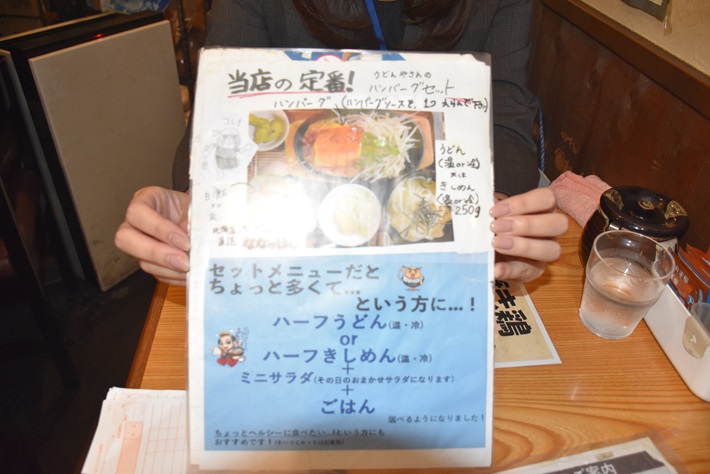 当店の定番!
うどんやさんの
ハンバーグセット
ハンバーグ(ハンバーグソースを、1つ
うどん
(温or冷)
又は
きしめん
(温or冷)
250g
セットメニューだと
ちょっと多くて…
という方に…!
ハーフうどん(温・冷)
or
ハーフきしめん(温・冷)
+
ミニサラダ(その日のおまかせサラダになります)
+
ごはん
選べるようになりました!
ちょっとヘルシーに食べたい…!という方にも
おすすめです!
鶏
ご案内